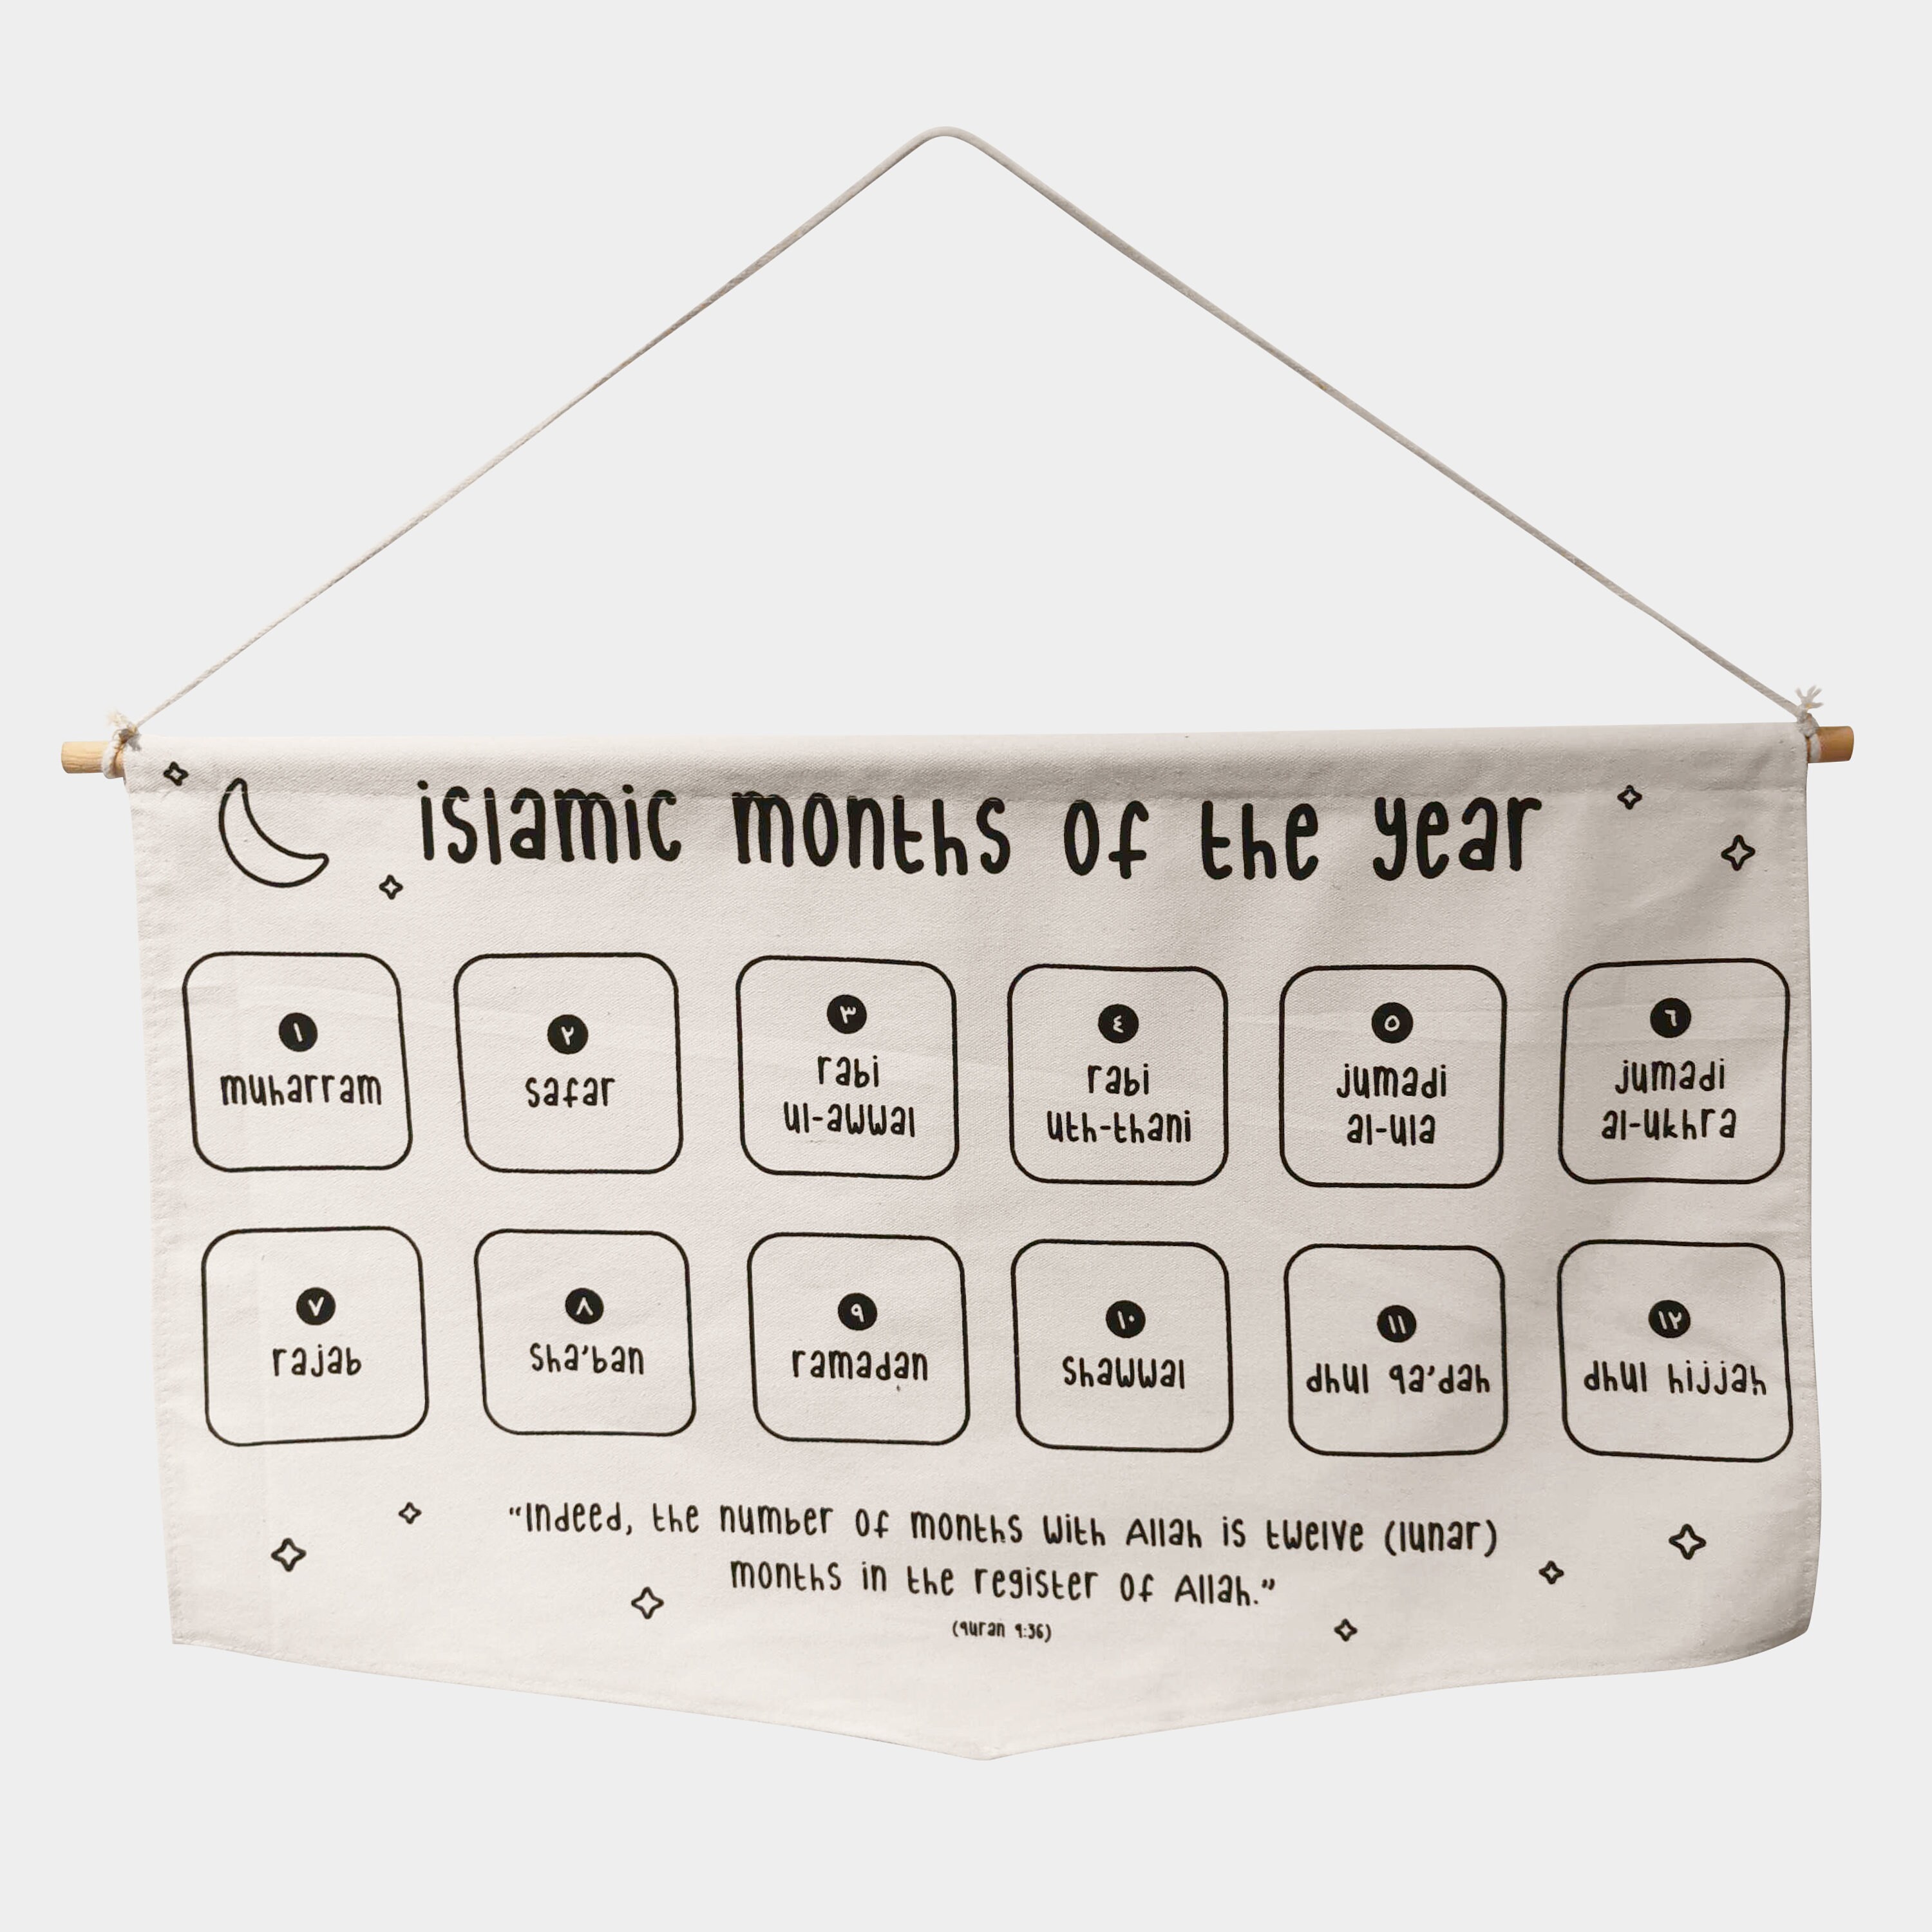 islamic months of the year
١
muharram
٢
safar
٣
rabi
ul-awwal
٤
rabi
uth-thani
٥
jumadi
al-ula
٦
jumadi
al-ukhra
٧
rajab
٨
sha'ban
٩
ramadan
١٠
shawwal
١١
dhul qa'dah
١٢
dhul hijjah
“Indeed, the number of months with Allah is twelve (lunar)
months in the register of Allah.”
(quran 9:36)